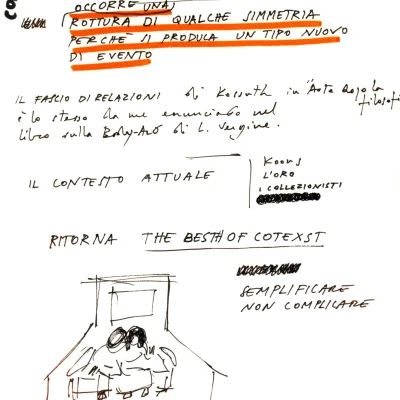 OCCORRE UNA
ROTTURA DI QUALCHE SIMMETRIA
PERCHÈ SI PRODUCA UN TIPO NUOVO
DI EVENTO
IL FASCIO DI RELAZIONI di Kossuth in "Arte dopo la filosofi
è lo stesso da me enunciato nel
libro sulla Body-Art di L. Vergine.
IL CONTESTO ATTUALE
KOONS
L'ORO
I COLLEZIONISTI
RITORNA THE BESTH OF COTEXST
SEMPLIFICARE
NON COMPLICARE